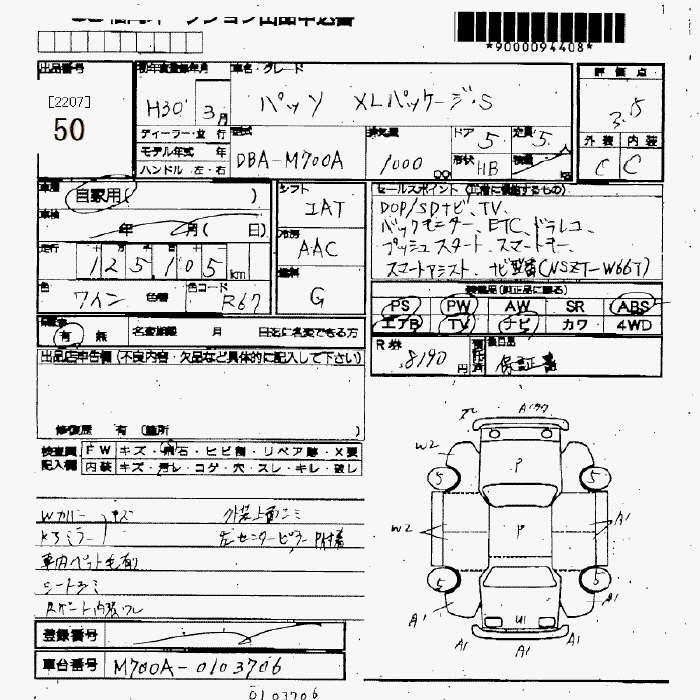 *9000094408*
出品番号
[2207]
50
初年度登録年月
H30 3月
車名・グレード
パッソ XLパッケージ・S
評価点
3.5
外装 内装
C C
ディーラー・並行
モデル年式 年
ハンドル 左・右
型式
DBA-M700A
排気量
1000 cc
ドア 5
形状 HB
定員 5
車歴
自家用( )
車検
年 月( 日)
走行
125,105 km
色
ワイン
色替
色コード
R67
シフト
IAT
冷房
AAC
燃料
G
セールスポイント
DOP/SDナビ、TV、
バックモニター、ETC、ドラレコ、
プッシュスタート、スマートキー、
スマートアシスト、ナビ型番(NSZT-W66T)
PS PW AW SR ABS
エアB TV ナビ カワ 4WD
有 無
名変期限 月 日迄に名変できる方
R券
8190円
後日品
保証書
出品店申告欄(不良内容・欠品など具体的に記入して下さい)
修復歴 有 (箇所 )
検査員
記入欄
FW キズ・飛石・ヒビ割・リペア跡・X要
内装 キズ・汚レ・コゲ・穴・スレ・キレ・破レ
Wカバー
Rドアミラー
キズ
外装上面シミ
左センターピラーP付着
車内ペット毛有り
シートシミ
ラゲート内張スレ
登録番号
車台番号
M700A-0103706
0103706
A1ワク
W2
P
5
5
W2
P
A1
A1
5
5
A1
U1
A1
A1
A1
A1